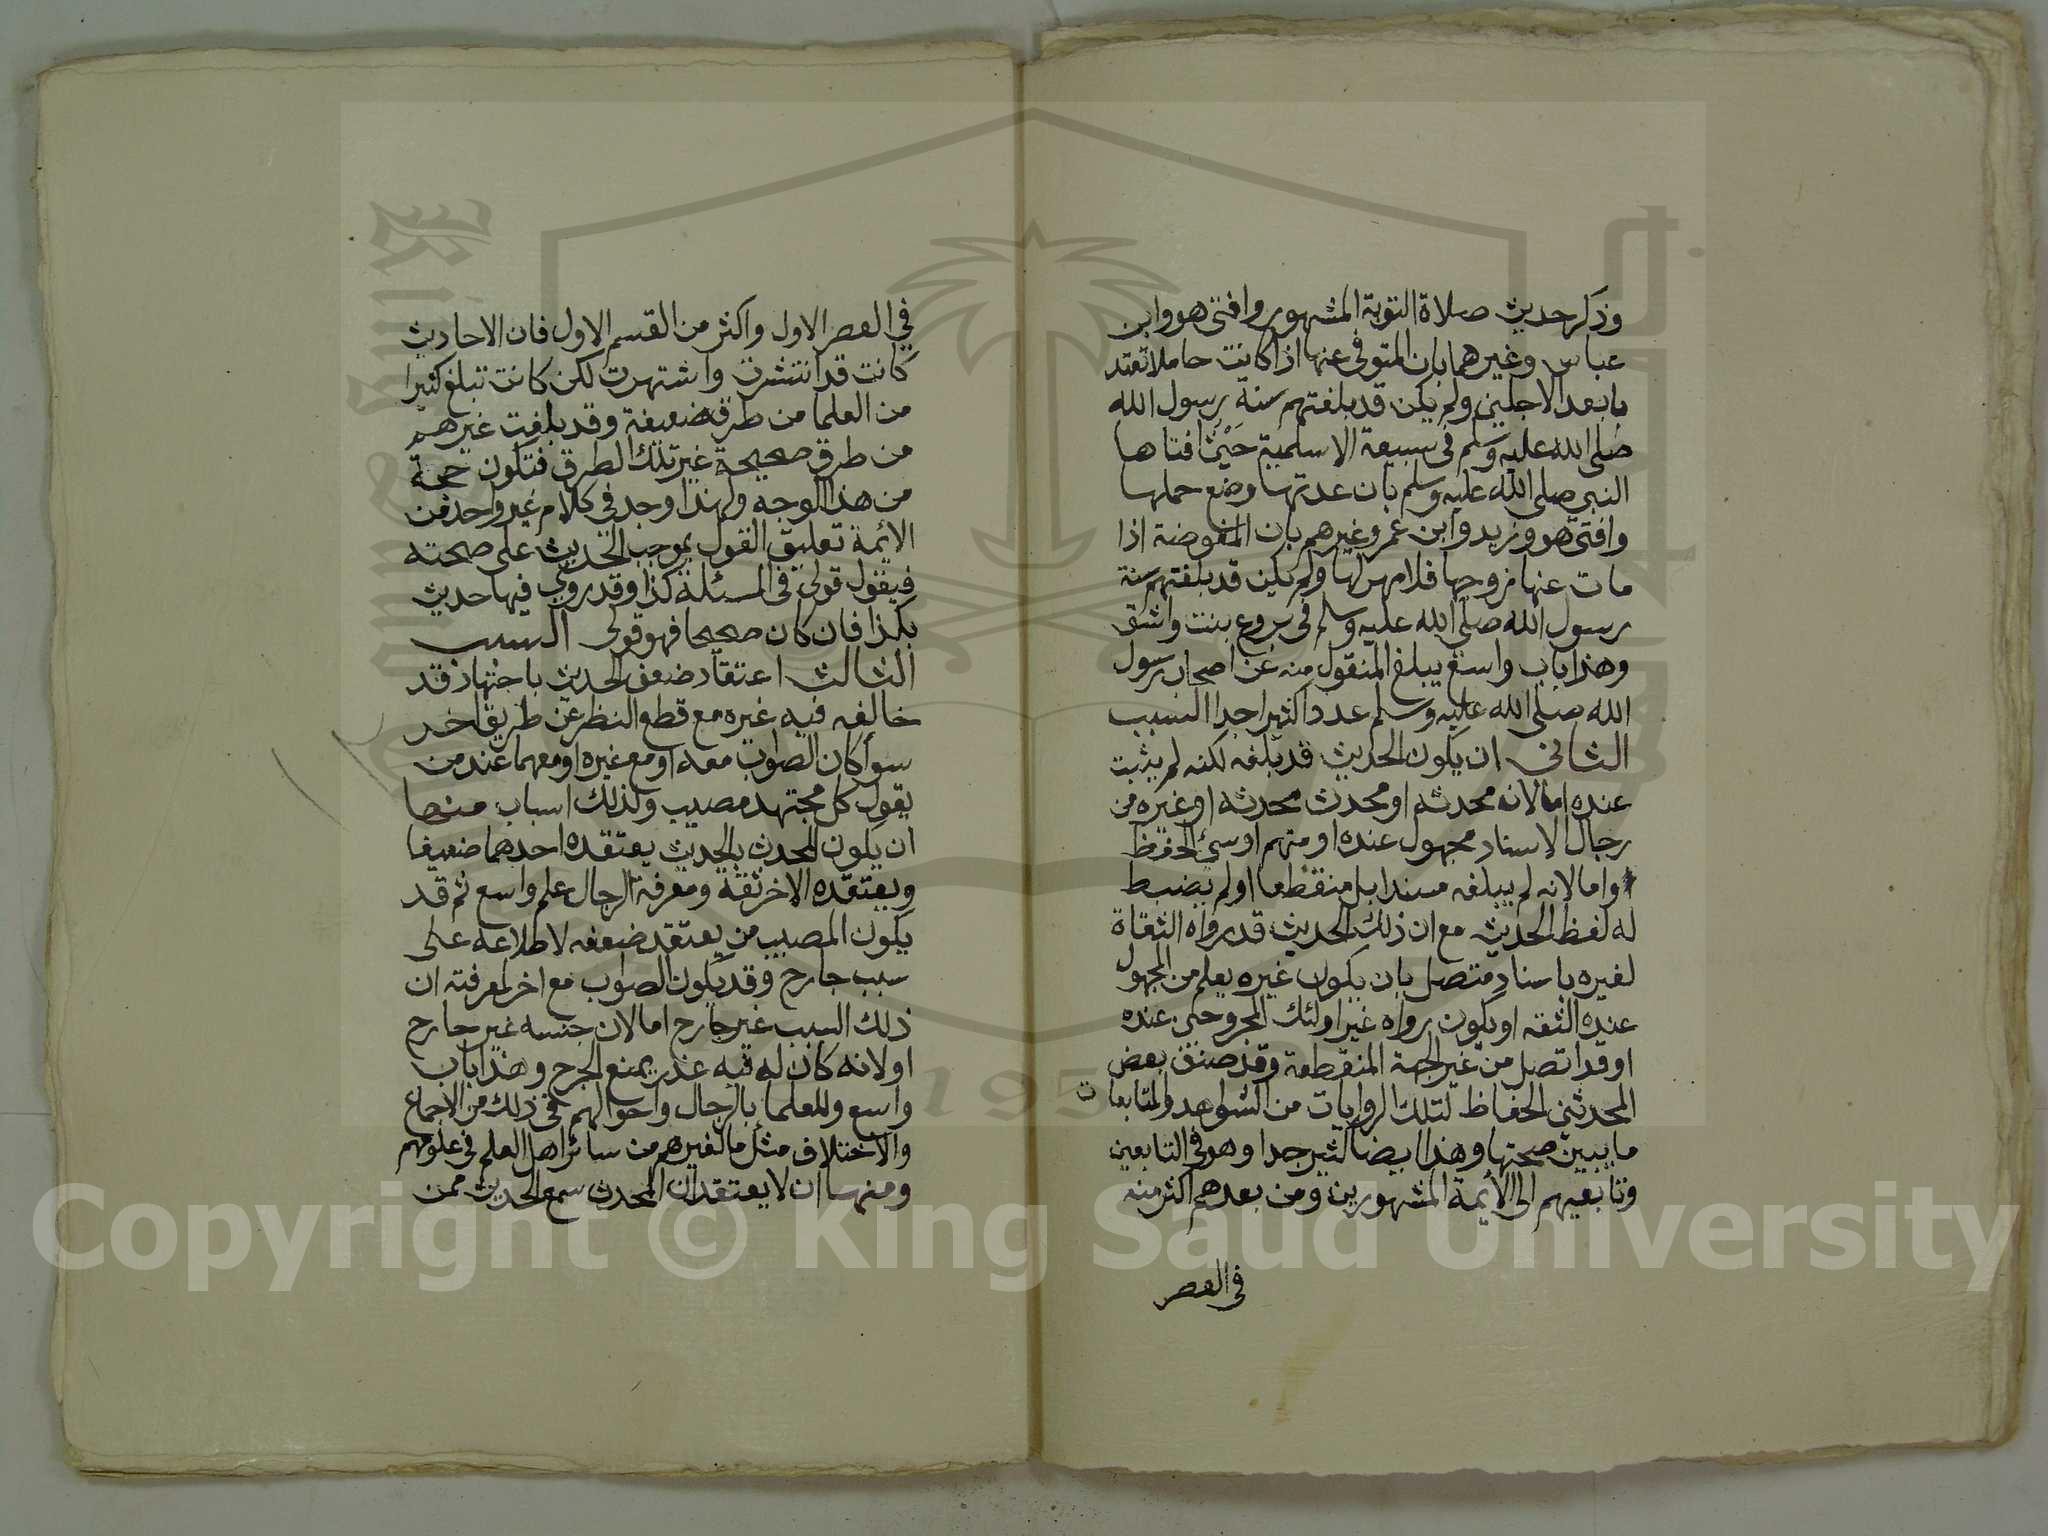 وذكر حديث صلاة التوبة المشهور وافتى هو وابن
عباس وغيرهما بان المتوفى عنها اذا كانت حاملا تعتد
بابعد الاجلين ولم يكن قد بلغتهم سنة رسول الله
صلى الله عليه وسلم في سبيعة الاسلمية حيث افتاها
النبي صلى الله عليه وسلم بان عدتها وضع حملها
وافتى هو وزيد وابن عمر وغيرهم بان المفوضة اذا
مات عنها زوجها فلا مهر لها ولم يكن قد بلغتهم سنة
رسول الله صلى الله عليه وسلم في بروع بنت واشق
وهذا باب واسع يبلغ المنقول منه عن اصحاب رسول
الله صلى الله عليه وسلم عددا كثيرا جدا السبب
الثاني ان يكون الحديث قد بلغه لكنه لم يثبت
عنده اما لانه محدثه او محدث محدثه او غيره من
رجال الاسناد مجهول عنده او متهم او سيئ الحفظ
واما لانه لم يبلغه مسندا بل منقطعا او لم يضبط
له لفظ الحديث مع ان ذلك الحديث قد رواه الثقاة
لغيره باسناد متصل بان يكون غيره يعلم من المجهول
عنده الثقه او يكون رواه غير اولئك المجروحين عنده
او قد اتصل من غير الجهة المنقطعة وقد صنف بعض
المحدثين الحفاظ لتلك الروايات من الشواهد والمتابعات
ما يبين صحتها وهذا ايضا كثير جدا وهو في التابعين
وتابعيهم الى الأيمة المشهورين ومن بعدهم اكثر منه
في العصر
في العصر الاول واكثر من القسم الاول فان الاحاديث
كانت قد انتشرت واشتهرت لكن كانت تبلغ كثيرا
من العلما من طرق ضعيفة وقد بلغت غيرهم
من طرق صحيحة غير تلك الطرق فتكون حجة
من هذا الوجه ولهذا وجد في كلام غير واحد من
الأيمة تعليق القول بموجب الحديث على صحته
فيقول قولي في المسئلة كذا وقد روي فيها حديث
بكذا فان كان صحيحا فهو قولي السبب
الثالث اعتقاد ضعف الحديث باجتهاد قد
خالفه فيه غيره مع قطع النظر عن طريق اخر
سوأ كان الصواب معه او مع غيره او معهما عند من
يقول كل مجتهد مصيب ولذلك اسباب منها
ان يكون المحدث بالحديث يعتقده احدهما ضعيفا
ويعتقده الاخر ثقة ومعرفة الرجال علم واسع ثم قد
يكون المصيب من يعتقد ضعفه لاطلاعه على
سبب جارح وقد يكون الصواب مع اخر لمعرفته ان
ذلك السبب غير جارح اما لان جنسه غير جارح
او لانه كان له فيه عذر يمنع الجرح وهذا باب
واسع وللعلما بالرجال واحوالهم في ذلك من الاجماع
والاختلاف مثل ما لغيرهم من سائر اهل العلم في علومهم
ومنها ان لا يعتقد ان المحدث سمع الحديث ممن
Copyright © King Saud University